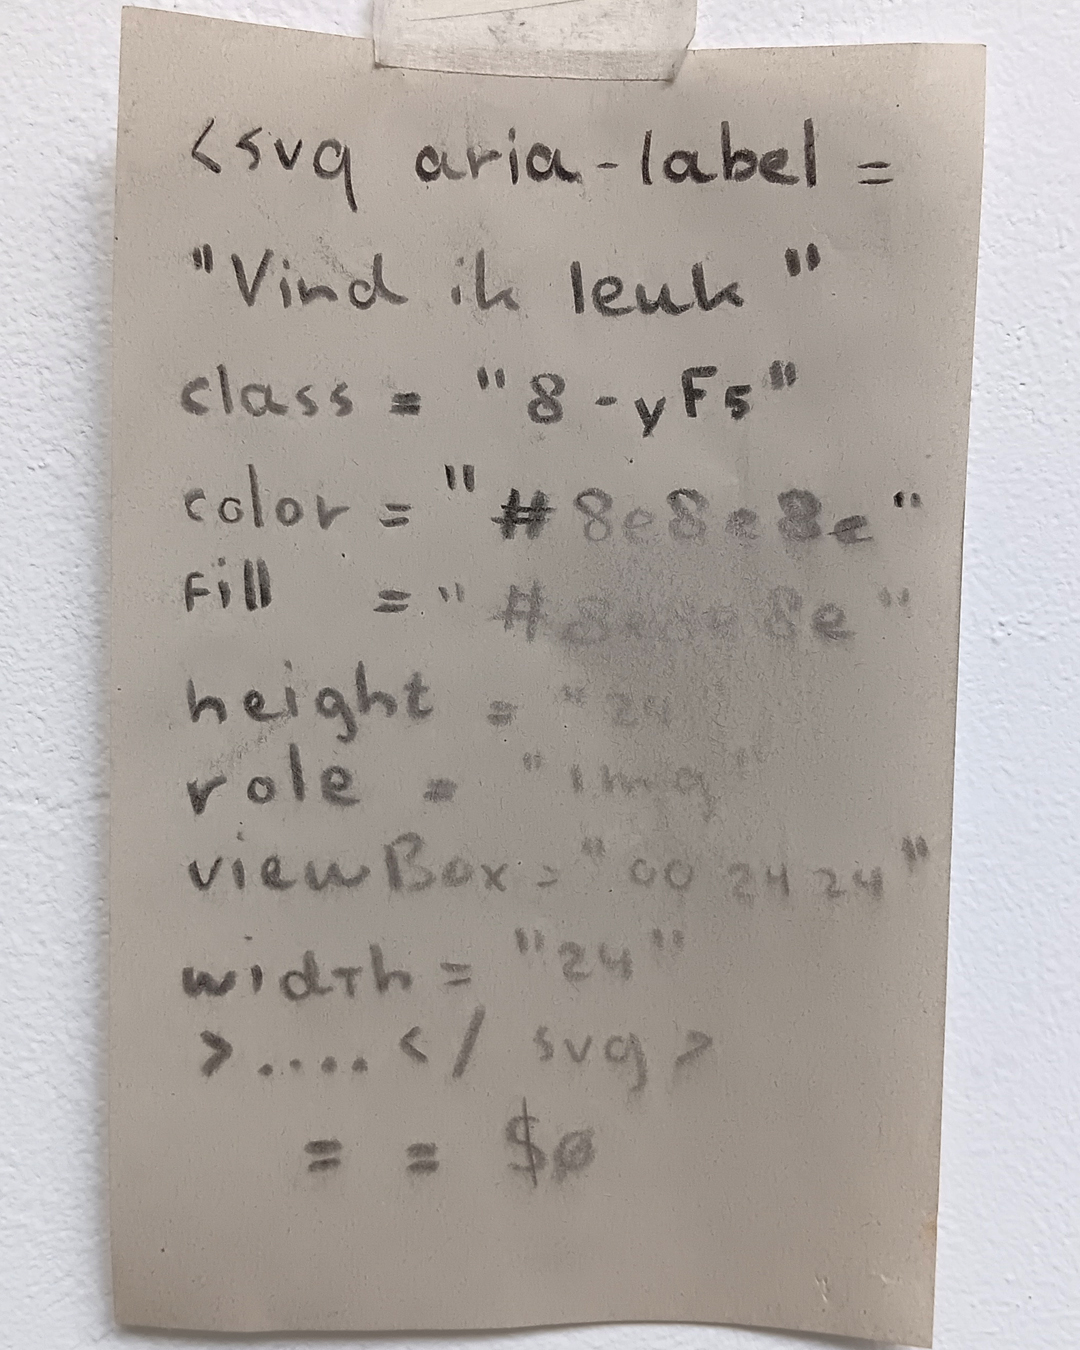 <svg aria-label =
"Vind ik leuk"
class = "8-yF5"
color = "#8e8e8e"
Fill = "#8e8e8e"
height = "24
role = "img"
viewBox = "00 24 24"
width = "24"
>....</ svg>
= = $0